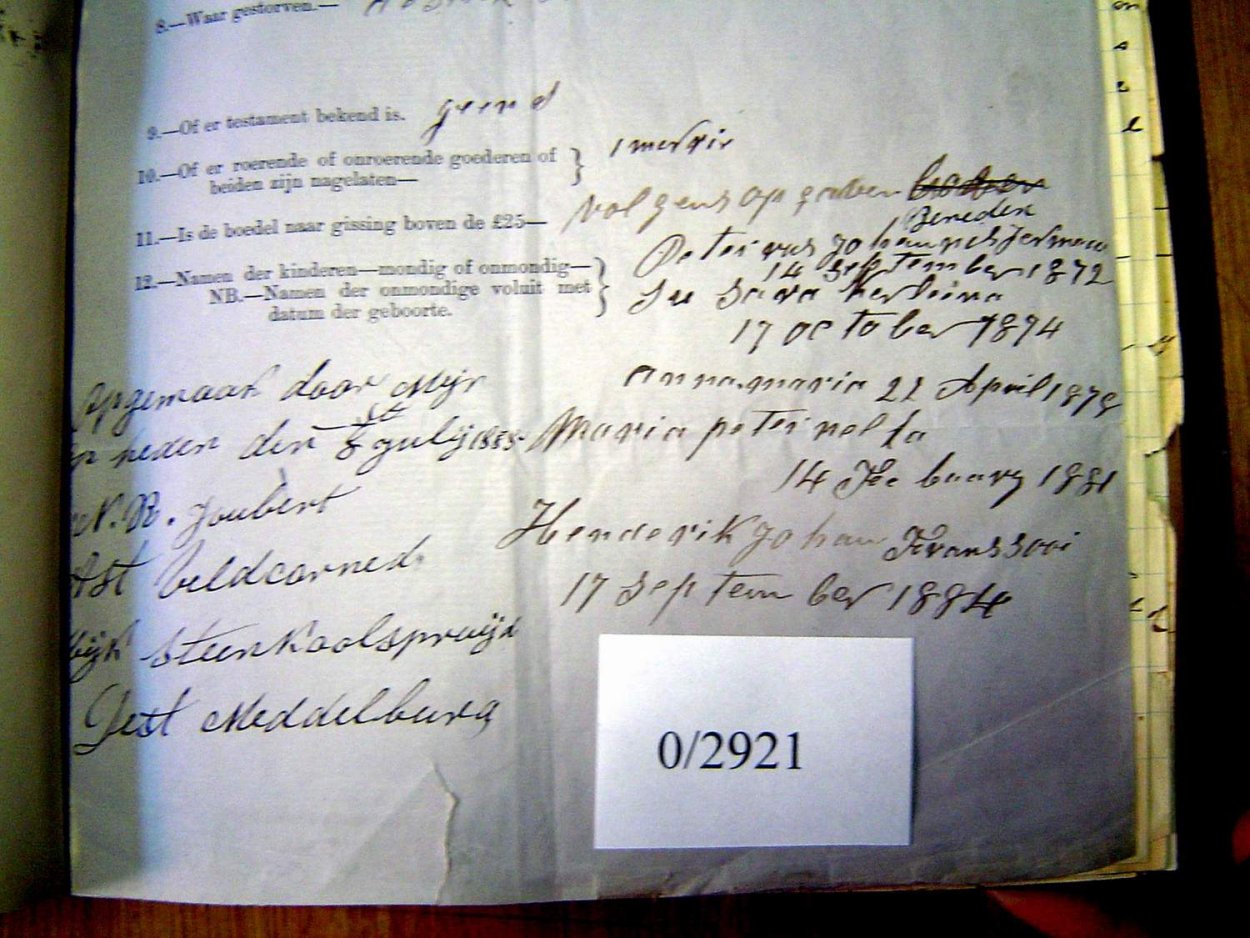 8.—Waar gestorven.—
9.—Of er testament bekend is. geend
10.—Of er roerende of onroerende goederen of
beiden zijn nagelaten—
1 merrie
11.—Is de boedel naar gissing boven de £25— volgens op gaben
Beneden
12.—Namen der kinderen—mondig of onmondig—
NB.—Namen der onmondige voluit met
datum der geboorte.
Peterus Johannes
14 September 1872
Sara
17 october 1874
annamaria 22 April 1878
Maria peternella
14 Febuary 1881
Henderik Johan Franssooi
17 september 1884
Opgemaak door Mijn
op heden den 8 gulij 1885
N. R. Joubert
Ast Veldcorned
Wijk Steenkoolspruijt
Dest Meddelburg
0/2921